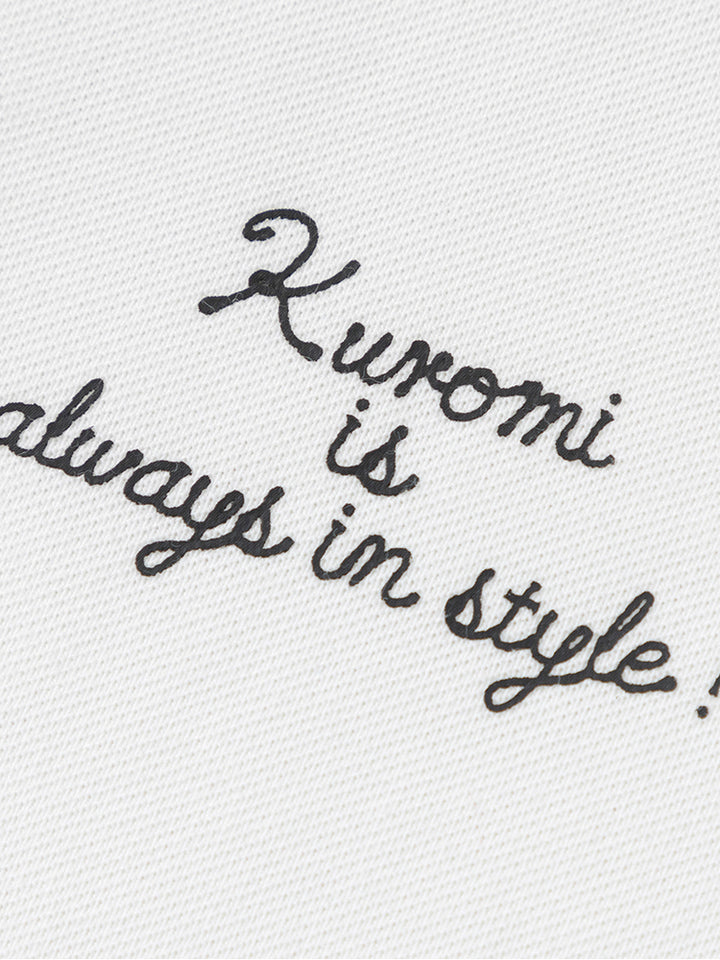 Kuromi
is
always in style!